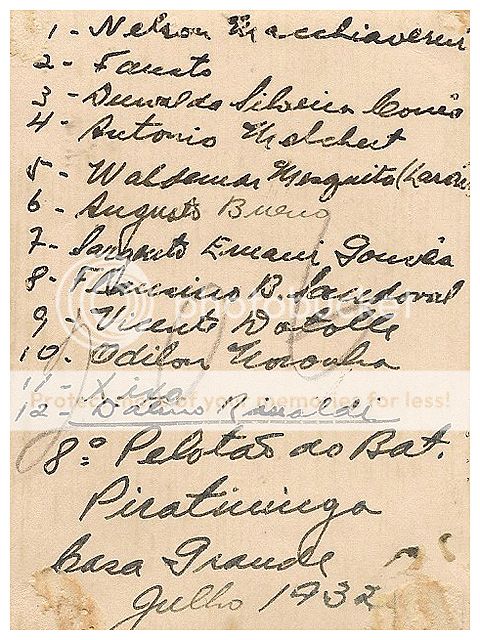 1 - Nelson Macchiaverni
2 - Fausto
3 - Durvaldo Silveira
4 - Antonio Melchert
5 - Waldemar Mesquita
6 - Augusto Bueno
7 - Sargento Ernani Gouvêa
8 - B. Sandoval
9 - Vicente
10 - Odilon Noronha
11 -
12 - Rinaldi
8º Pelotão do Bat.
Piratininga
Casa Grande
Julho 1932
photobucket
Protect more of your memories for less!